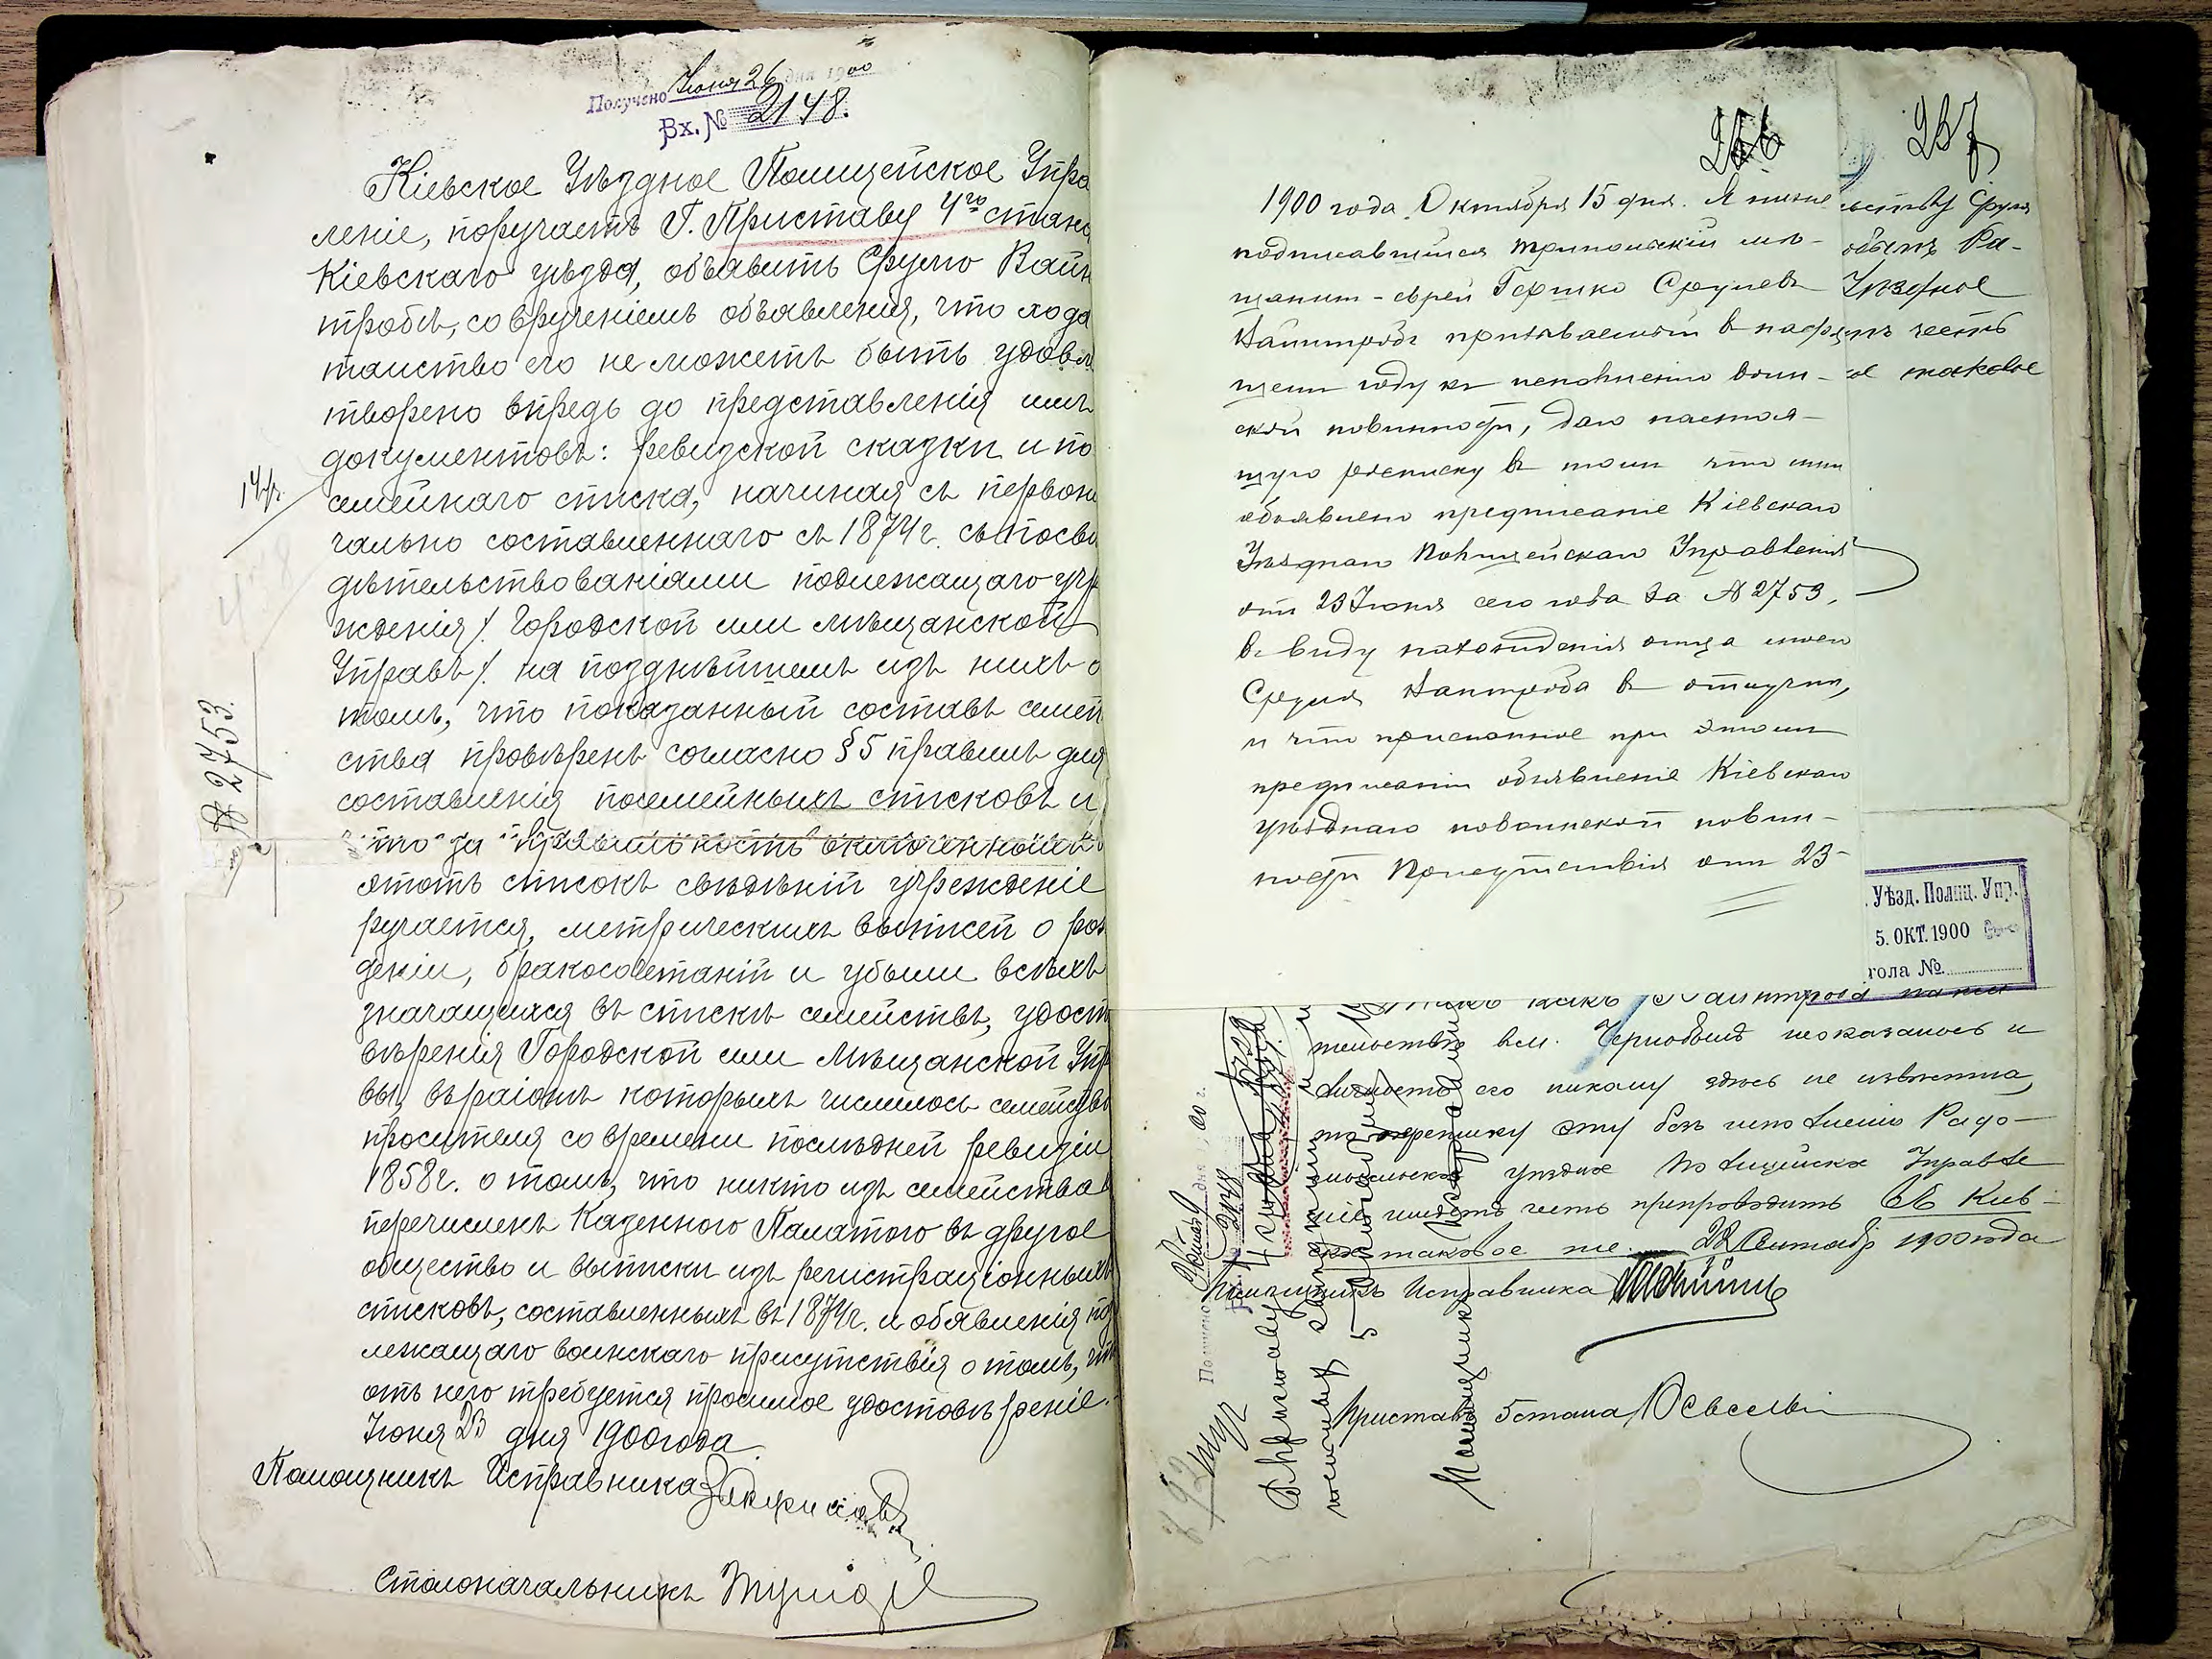 Получено Іюня 26 дня 1900
Вх. № 2148.
Кіевское Уѣздное Полицейское Упра
леніе, поручаетъ Г. Приставу 4го стана
Кіевскаго уѣзда, объявить Срулю Вайн
тробѣ, со врученіемъ объявленія, что хода
тайство его не можетъ быть удовле
творено впредь до представленія имъ
документовъ: ревизской сказки и по
семейнаго списка, начиная съ первон
чально составленнаго съ 1874 г. съ посви
дѣтельствованіями подлежащаго учр
жденія /. Городской или мѣщанской
Управъ /. на позднѣйшемъ изъ нихъ о
томъ, что показанный составъ семей
ства провѣренъ согласно § 5 правилъ для
составленія посемейныхъ списковъ и
что за правильность включенныхъ
этотъ списокъ свѣдѣній учрежденіе
ручается, метрическихъ выписей о рож
деніи, бракосочетаній и убыли всѣхъ
значащихся въ спискѣ семействъ, удост
вѣренія Городской или Мѣщанской Упр
вы, въ раіонѣ которыхъ числилось семейство
просителя со времени послѣдней ревизіи
1858 г. о томъ, что никто изъ семейства
перечисленъ Казенного Палатою въ другое
общество и выписки изъ регистраціонныхъ
списковъ, составленныхъ въ 1874 г. и объявленія по
лежащаго воинскаго присутствія о томъ, что
отъ него требуется просимое удостовѣреніе.
Іюня 23 дня 1900 года
Помощникъ Исправника
Столоначальникъ
№ 2753.
256
257
1900 года Октября 15 дня. Я ниже
подписавшійся Трипольскій мѣ-
щанин - еврей Гершко Срулевъ
Вайнтробъ призываемый в насто
щем году къ исполненію воин-
ской повинности, даю настоя-
щую росписку в томъ что мнѣ
объявлено предписаніе Кіевскаго
Уѣзднаго Полицейскаго Управленія
отъ 23 Іюня сего года за № 2753,
в виду нахожденія отца моего
Сруля Вайнтроба в отлучкѣ,
и что присланное при этомъ
предписаніи объявленіе Кіевскаго
уѣзднаго по воинской повин-
ности Присутствія отъ 23-
ьству Срул
обыл Ра-
Уѣздное
етъ честь
ое таковое
. Уѣзд. Полиц. Упр.
5. ОКТ. 1900
тола №
Такъ какъ Вайнтроба на жи
тельствѣ в м. Чернобылѣ не оказалось и
личность его никому здѣсь не извѣстна,
то переписку эту безъ исполненія Радо-
мысльское уѣздное Полицейское Управле
ніе имѣетъ честь препроводить въ Кіев-
ское таковое же. 22 Сентября 1900 года
Помощникъ Исправника
Приставъ 5 стана
Получено Октября 9 дня 1900 г.
Помощникъ Исправника